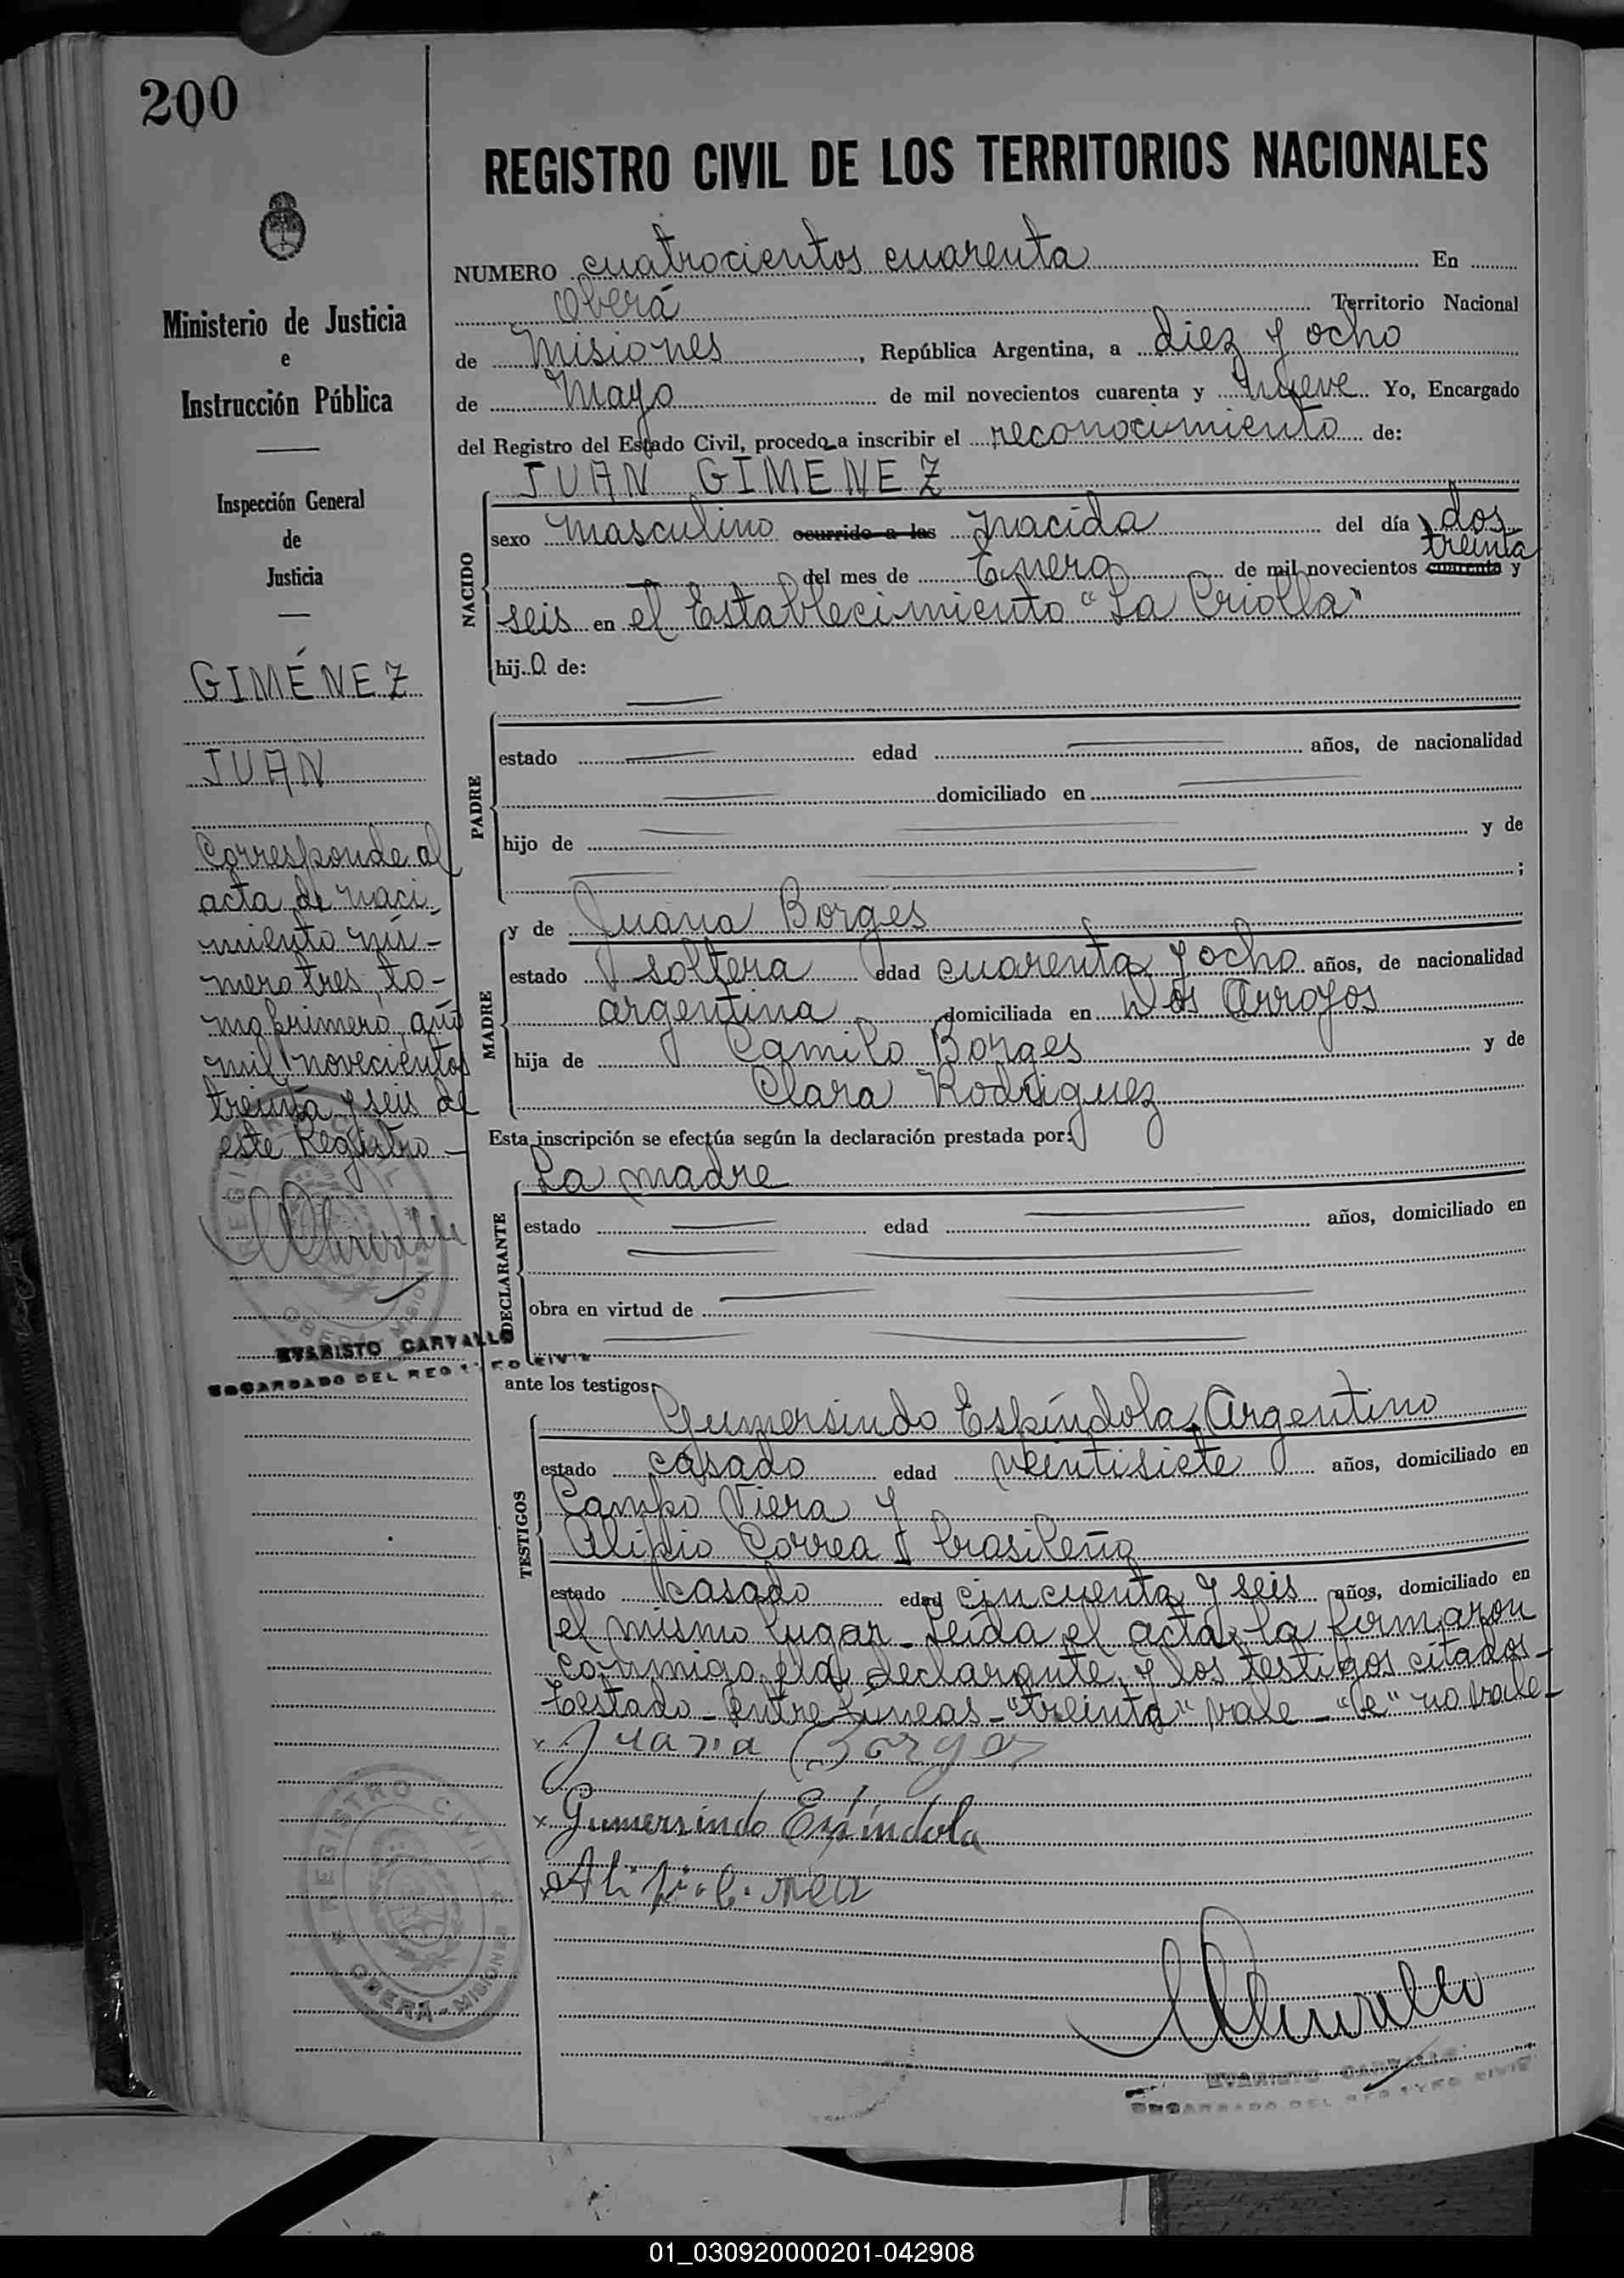 200
REGISTRO CIVIL DE LOS TERRITORIOS NACIONALES
Ministerio de Justicia
e
Instrucción Pública
Inspección General
de
Justicia
GIMÉNEZ
JUAN
Corresponde al
acta de naci-
miento nú-
mero tres, to-
mo primero, año
mil novecientos
treinta y seis de
este Registro -
REGISTRO CIVIL
OBERÁ - MISIONES
EVARISTO CARVALLO
ENCARGADO DEL REGISTRO CIVIL
NUMERO cuatrocientos cuarenta En
Oberá Territorio Nacional
de Misiones, República Argentina, a diez y ocho
de Mayo de mil novecientos cuarenta y nueve Yo, Encargado
del Registro del Estado Civil, procedo a inscribir el reconocimiento de:
JUAN GIMENEZ
NACIDO
sexo masculino ocurrido a las nacida del día dos
treinta
del mes de Enero de mil novecientos cuarenta y
seis en el Establecimiento "La Criolla"
hijo de:
PADRE
estado edad años, de nacionalidad
domiciliado en
hijo de y de
;
MADRE
y de Juana Borges
estado soltera edad cuarenta y ocho años, de nacionalidad
argentina domiciliada en Dos Arroyos
hija de Camilo Borges y de
Clara Rodriguez
Esta inscripción se efectúa según la declaración prestada por:
La madre
DECLARANTE
estado edad años, domiciliado en
obra en virtud de
ante los testigos:
TESTIGOS
Gumersindo Espíndola, Argentino
estado casado edad veintisiete años, domiciliado en
Campo Viera y
Alipio Correa, brasileño
estado casado edad cincuenta y seis años, domiciliado en
el mismo lugar. Leída el acta, la firmaron
conmigo, la declarante y los testigos citados -
Testado - Entre líneas - "treinta" vale - "le" no vale -
x Juana Borges
x Gumersindo Espíndola
x
REGISTRO CIVIL
OBERÁ - MISIONES
EVARISTO CARVALLO
ENCARGADO DEL REGISTRO CIVIL
01_030920000201-042908